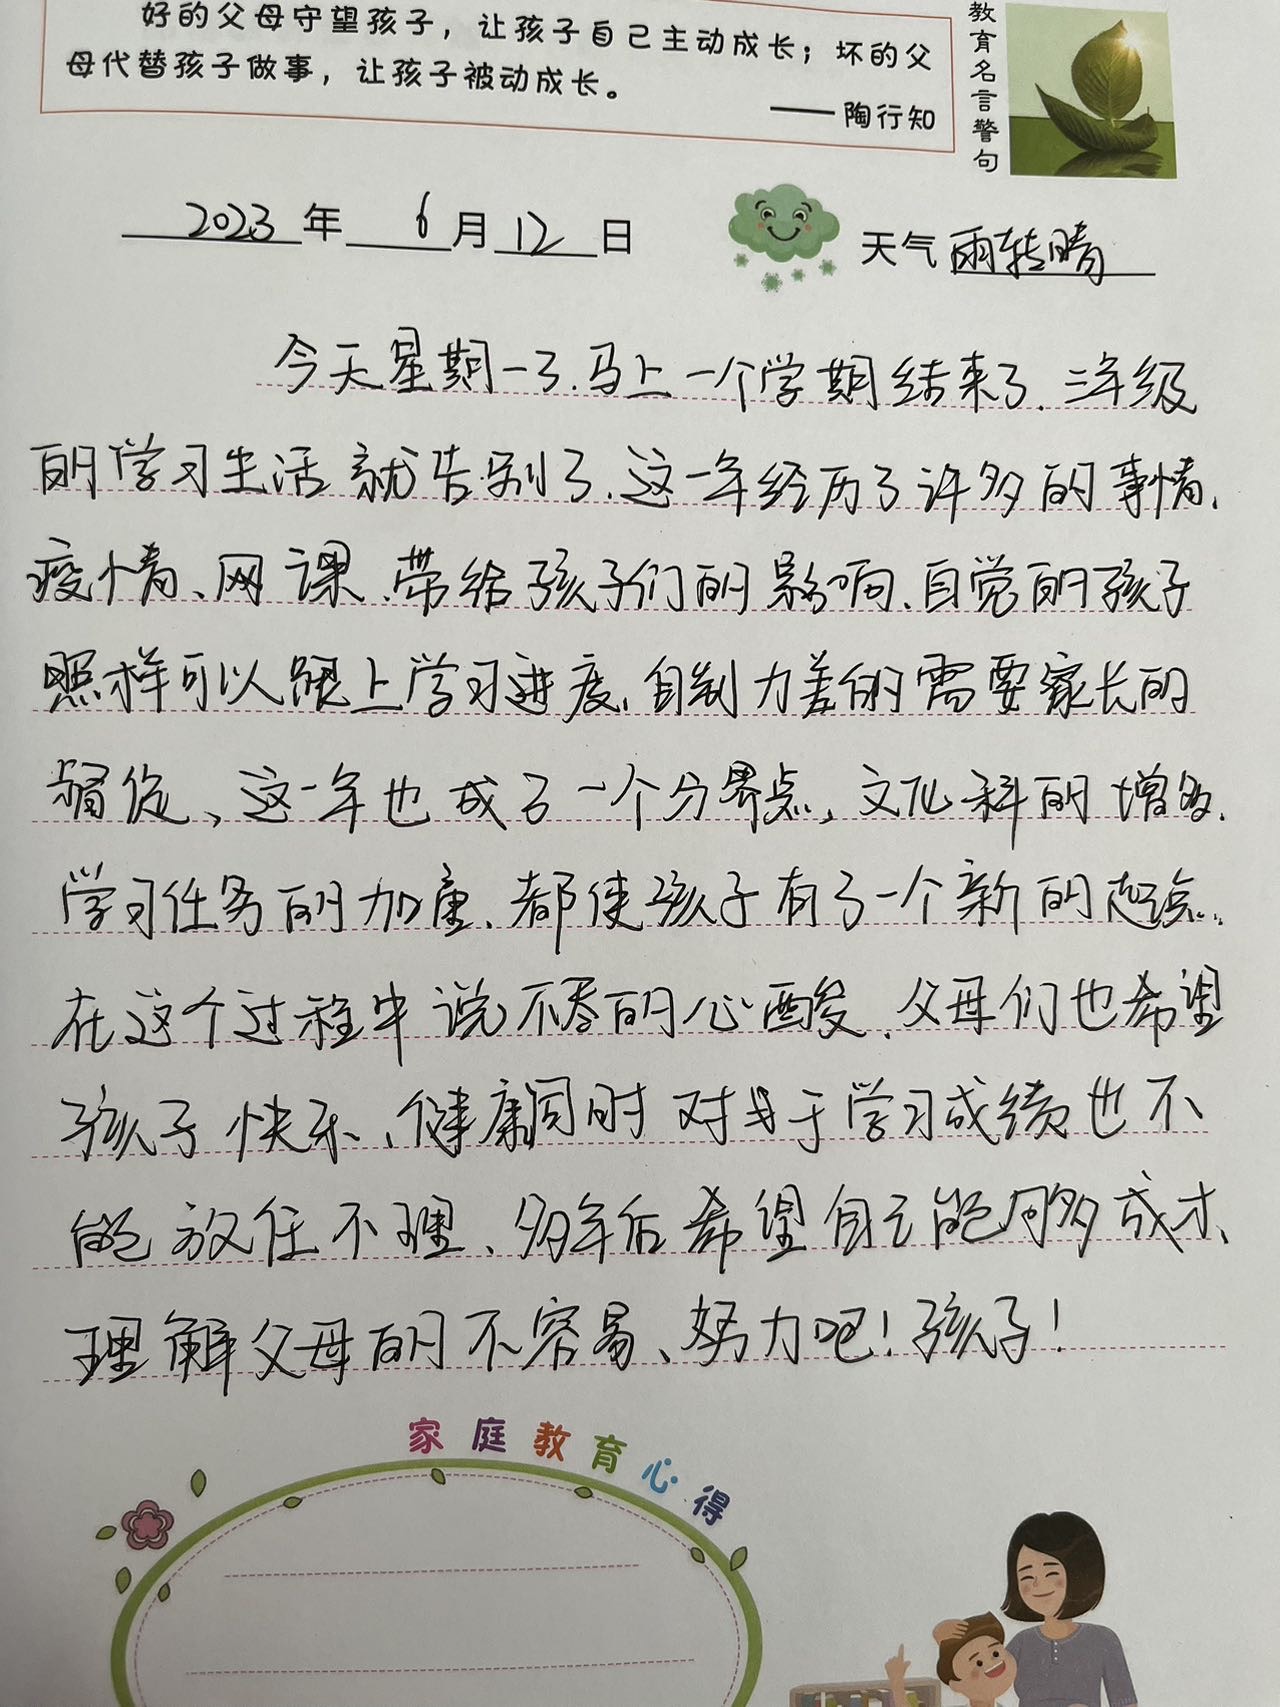 好的父母守望孩子，让孩子自己主动成长；坏的父
母代替孩子做事，让孩子被动成长。
——陶行知
教育名言警句
2023年6月12日 天气 雨转晴
今天星期一了.马上一个学期结束了.三年级
的学习生活就告别了.这一年经历了许多的事情.
疫情、网课.带给孩子们的影响.自觉的孩子
照样可以跟上学习进度.自制力差的需要家长的
督促、这一年也成了一个分界点,文化科的增多.
学习任务的加重、都使孩子有了一个新的起点..
在这个过程中说不尽的心酸.父母们也希望
孩子快乐、健康同时对于学习成绩也不
能放任不理、多年后希望自己能够成才、
理解父母的不容易、努力吧!孩子!
家庭教育心得